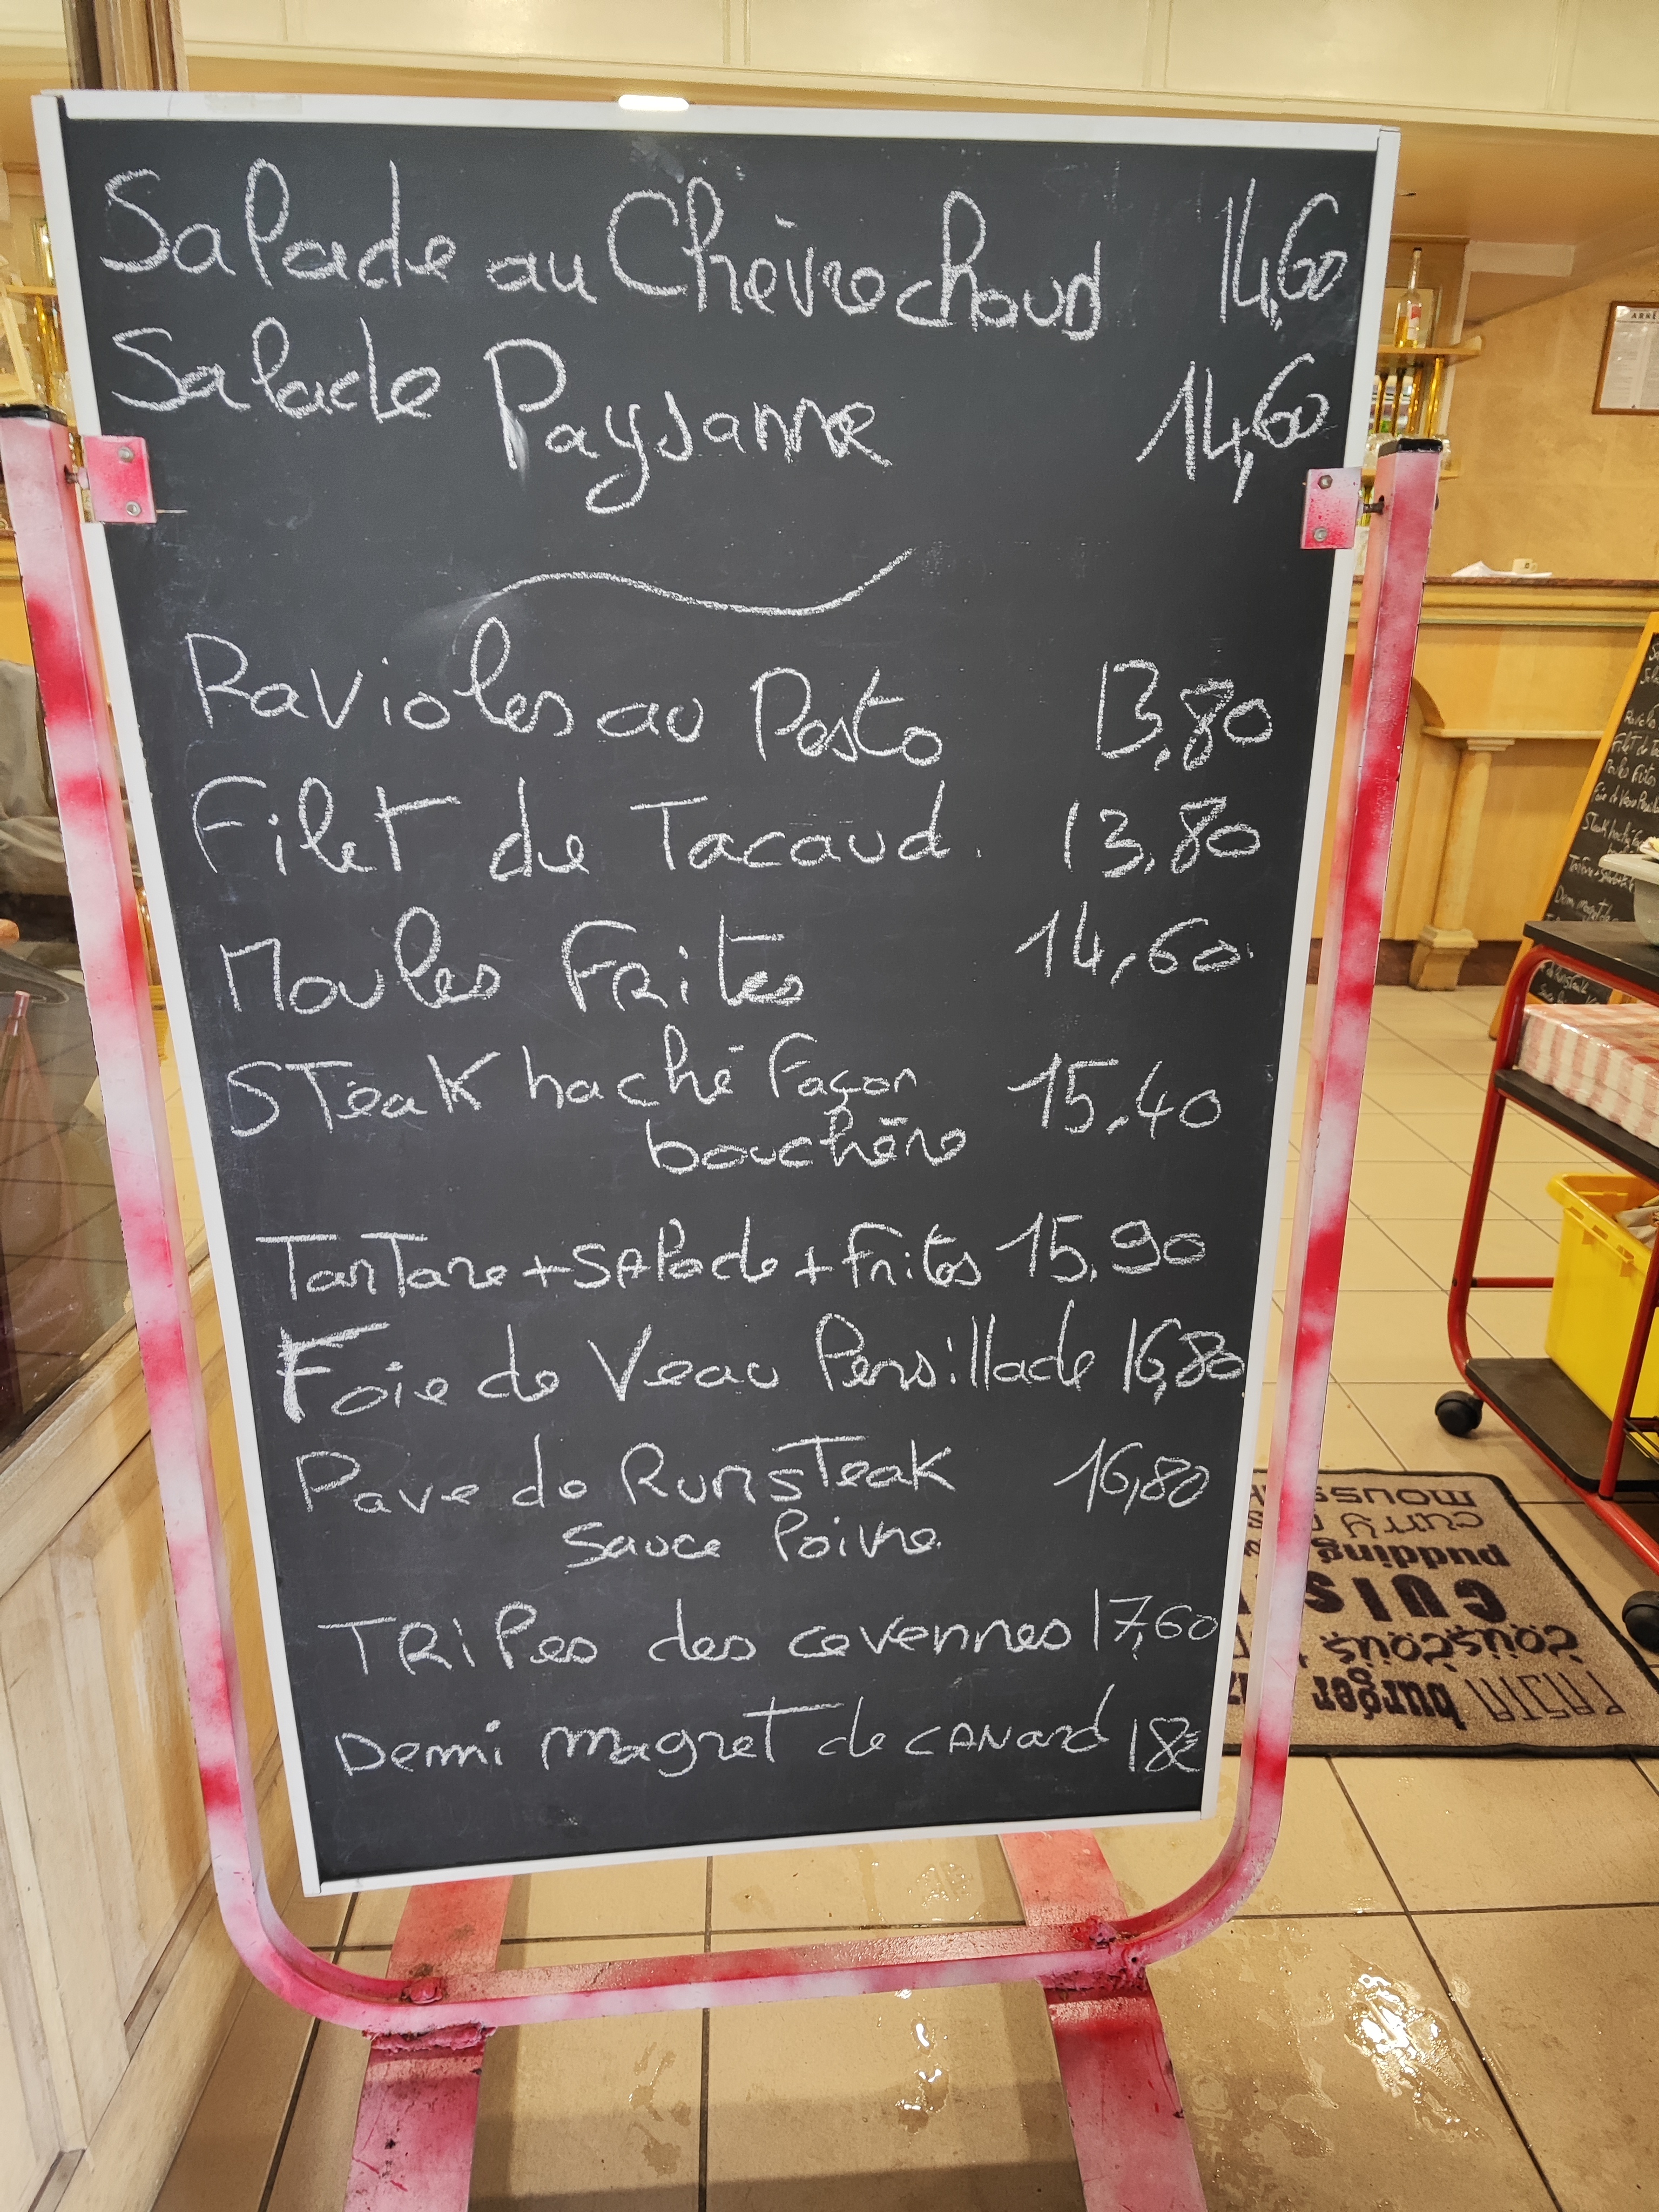 Salade au Chèvre chaud 14,60
Salade Paysanne 14,60
Ravioles au Pesto 13,80
Filet de Tacaud. 13,80
Moules Frites 14,60
STeak haché Façon 15,40
bouchère
TarTare + SAlade + frites 15,90
Foie de Veau Persillade 16,80
Pavé de RumsTeak 16,80
Sauce Poivre.
TRiPes des cevennes 17,60
Demi magreT de CANard 18€
ARRÊ
mousse
curry
pudding
CUIS
couscous
burger
PASTA